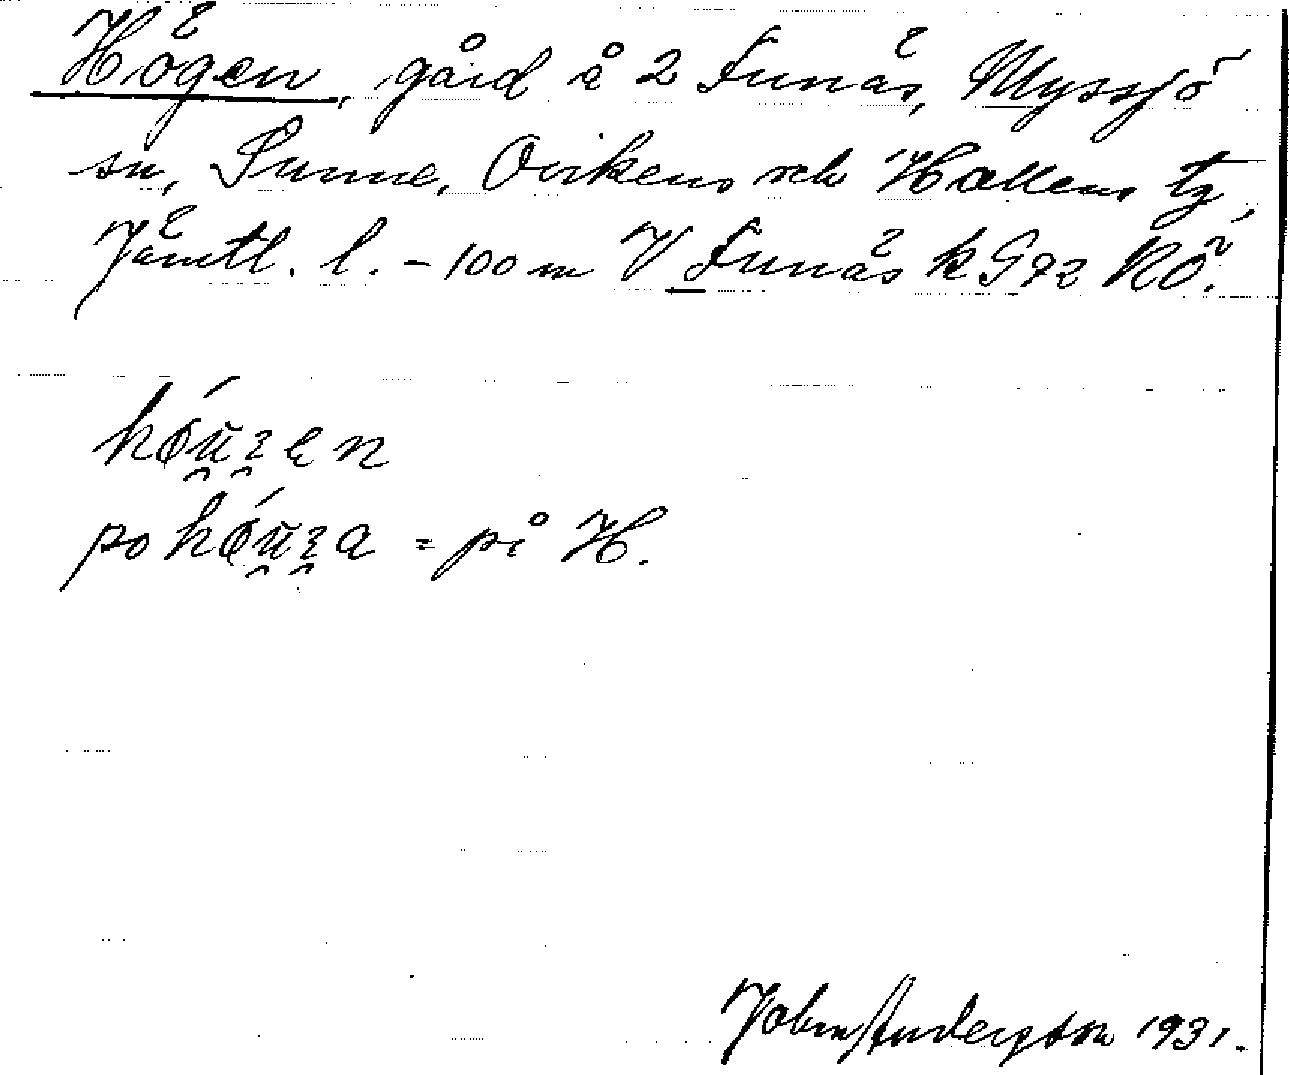 Högen, gård å 2 Funäs, Myssjö
sn, Sunne, Ovikens och Hallens tg,
Jämtl. l. – 100 m V Funäs k G92 RÖ.
po = på H.
John Anderson 1931.